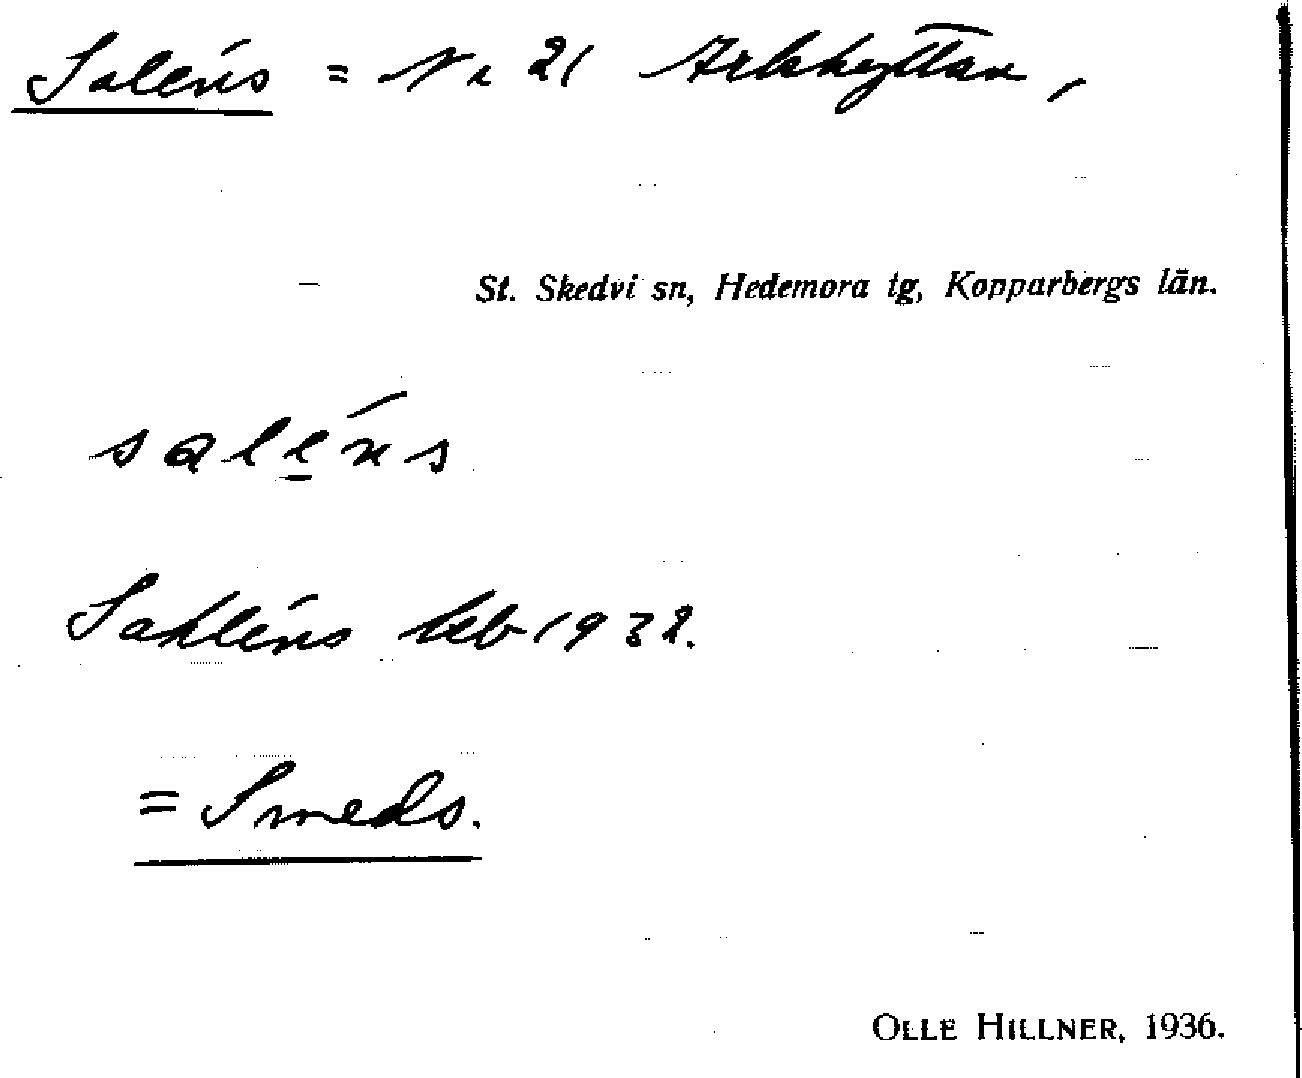 Saléns = Nr 21 Arkhyttan,
St. Skedvi sn, Hedemora tg, Kopparbergs län.
salén s
Sahléns kb 1932.
= Smeds.
OLLE HILLNER, 1936.